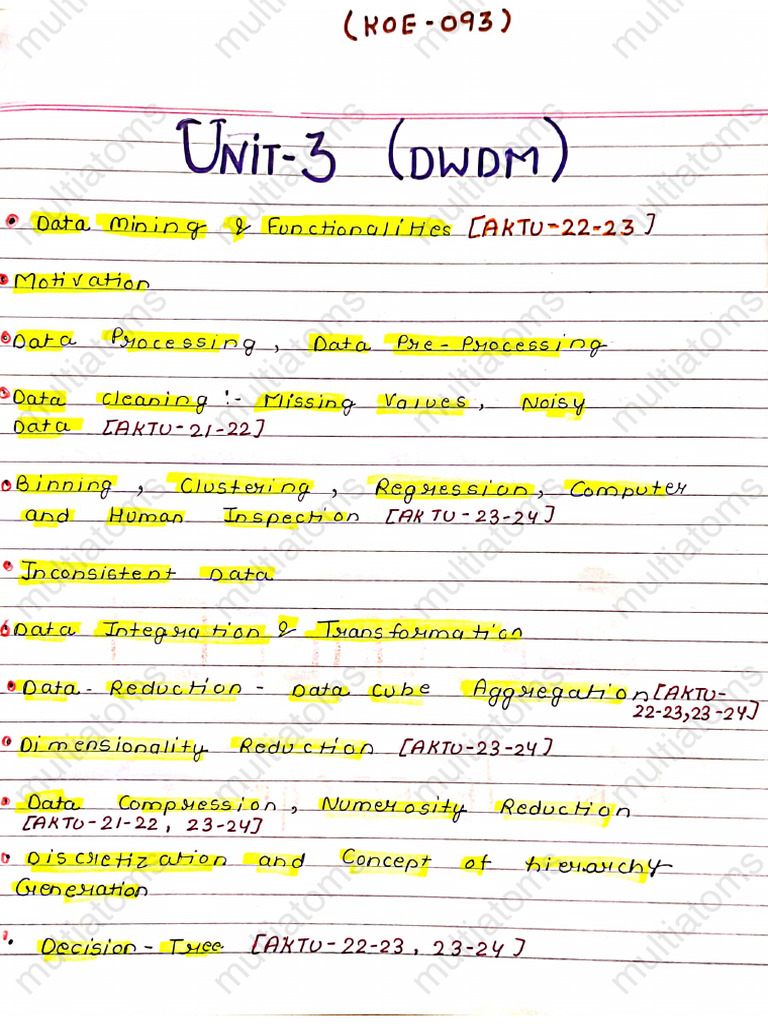 (KOE-093)
UNIT-3 (DWDM)
• Data Mining & Functionalities [AKTU-22-23]
• Motivation
• Data Processing, Data Pre-Processing
• Data Cleaning :- Missing Values, Noisy
Data [AKTU-21-22]
• Binning, Clustering, Regression, Computer
and Human Inspection [AKTU-23-24]
• Inconsistent Data
• Data Integration & Transformation
• Data-Reduction - Data Cube Aggregation [AKTU-
22-23, 23-24]
• Dimensionality Reduction [AKTU-23-24]
• Data Compression, Numerosity Reduction
[AKTU-21-22, 23-24]
• Discretization and Concept of hierarchy
Generation
• Decision-Tree [AKTU-22-23, 23-24]
multiatoms